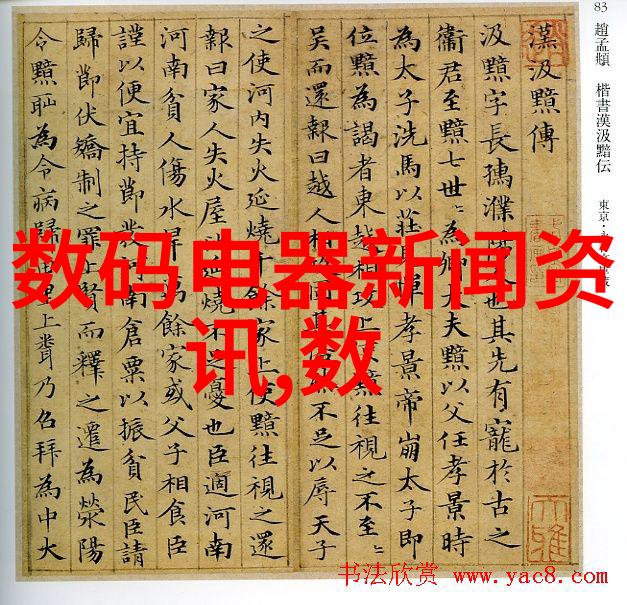 漢汲黯傳
汲黯字長孺濮
人也其先有寵於古之
衛君至黯七世〻為卿大夫黯以父任孝景時
為太子洗馬以莊見
憚孝景帝崩太子即
位黯為謁者東
相攻上
黯往視之不至〻
吳而還報曰越人相
不足以辱天子
之使河内失火延燒
餘家上使黯往視之還
報曰家人失火屋
延燒不
憂也臣適河南
河南貧人傷水旱萬餘家或父子相食臣
謹以便宜持節發河南倉粟以振貧民臣請
歸節伏矯制之罪上賢而釋之遷為滎陽
令黯恥為令病歸
上聞乃召拜為中大
83
趙孟頫 楷書漢汲黯伝
東京・永
数码电器新闻资
讯,数
书法欣赏 www.yac8.com